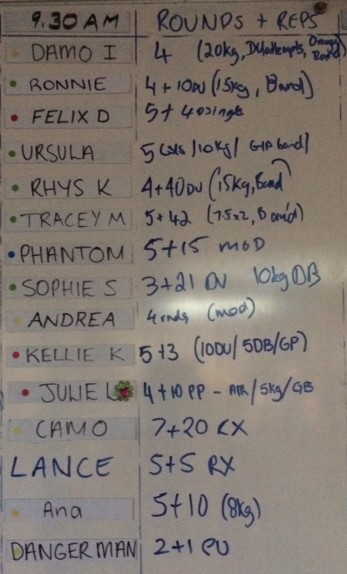 9.30 AM ROUNDS + REPS
DAMO I 4 (20kg, DU attempts, Orange Band)
RONNIE 4 + 10DU (15kg, Band)
FELIX D 5 + 40 single
URSULA 5 /10kg/ band/
RHYS K 4+40 DU (15kg, Band
TRACEY M 5+42 (7.5x2, Band)
PHANTOM 5+15 MOD
SOPHIE S 3+21 DU 10kg DB
ANDREA 4 rnds (mod)
KELLIE K 5+3 (10DU/5DB/GP)
JULIE L 4+10 PP - /5kg/GB
CAMO 7+20 RX
LANCE 5+5 RX
Ana 5+10 (8kg)
DANGERMAN 2+1 PU